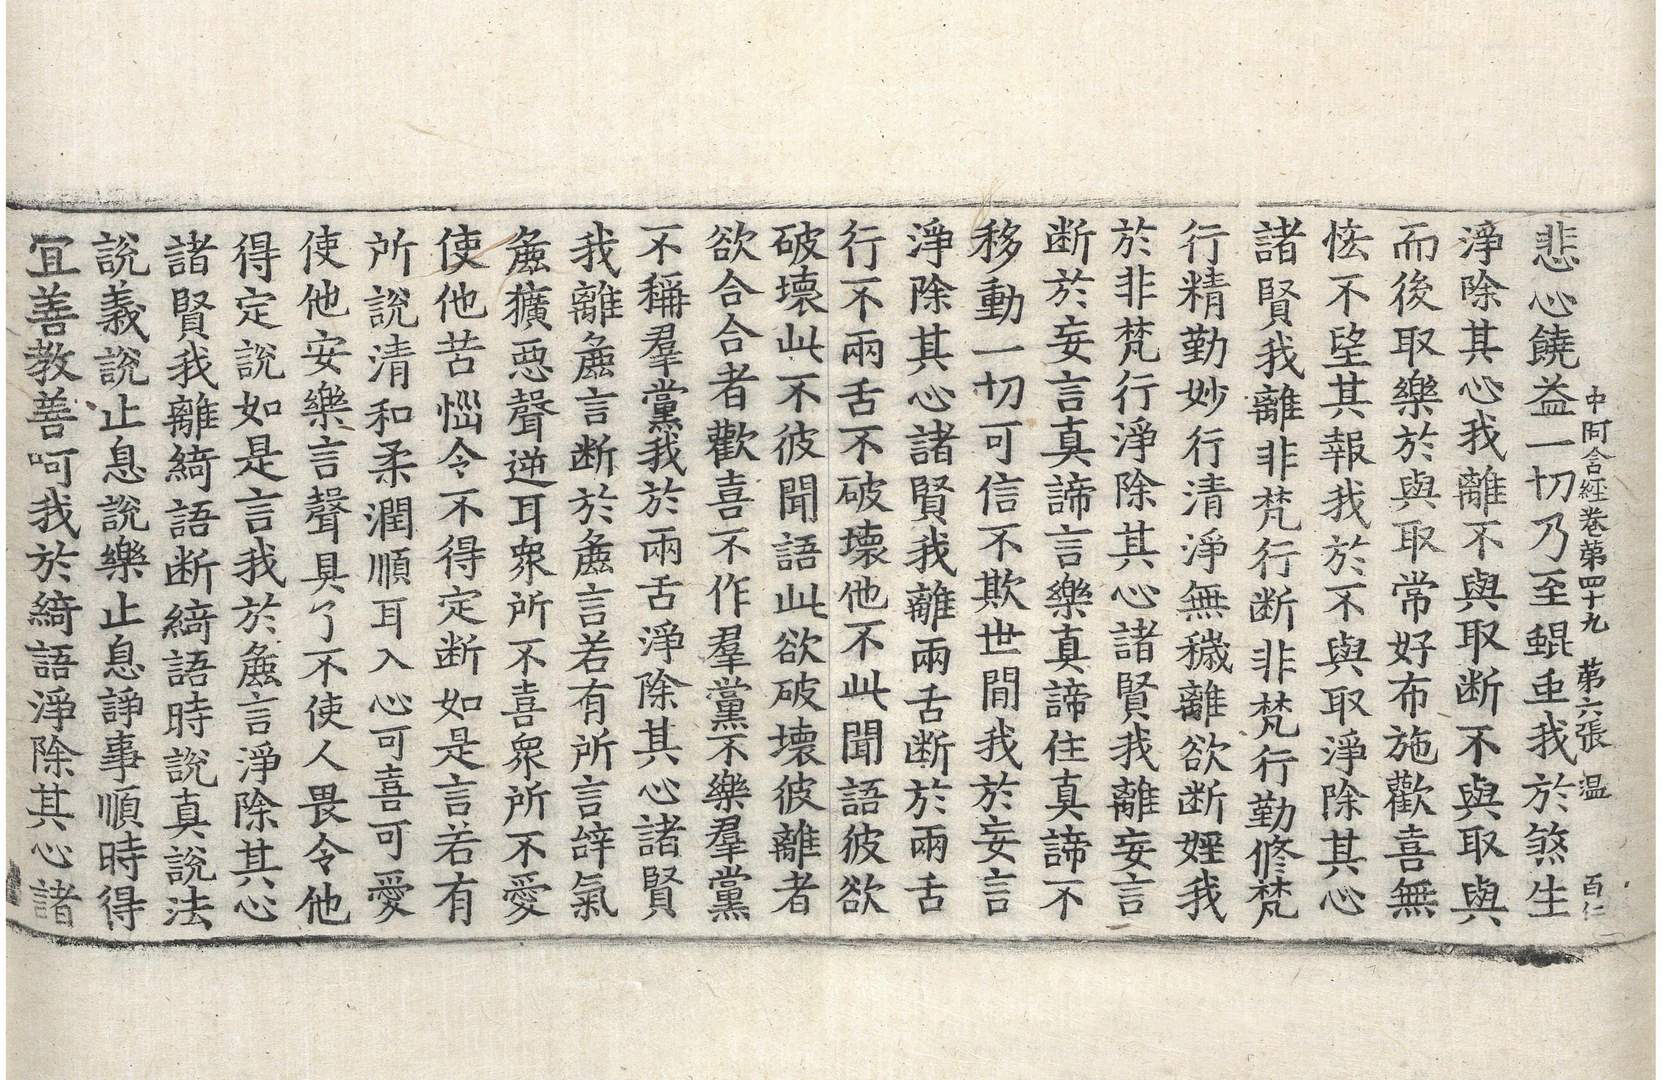 中阿含經卷第四十九 第六張 温 百仁
悲心饒益一切乃至蜫䖝我於煞生
淨除其心我離不與取断不與取與
而後取樂於與取常好布施歡喜無
恡不望其報我於不與取淨除其心
諸賢我離非梵行断非梵行勤修梵
行精勤妙行清淨無穢離欲断婬我
於非梵行淨除其心諸賢我離妄言
断於妄言真諦言樂真諦住真諦不
移動一切可信不欺世間我於妄言
淨除其心諸賢我離兩舌断於兩舌
行不兩舌不破壞他不此聞語彼欲
破壞此不彼聞語此欲破壞彼離者
欲合合者歡喜不作羣黨不樂羣黨
不稱羣黨我於兩舌淨除其心諸賢
我離麁言断於麁言若有所言辝氣
麁獷惡聲逆耳衆所不喜衆所不愛
使他苦惱令不得定断如是言若有
所說清和柔潤順耳入心可喜可愛
使他安樂言聲具了不使人畏令他
得定說如是言我於麁言淨除其心
諸賢我離綺語断綺語時說真說法
說義說止息說樂止息諍事順時得
冝善教善呵我於綺語淨除其心諸